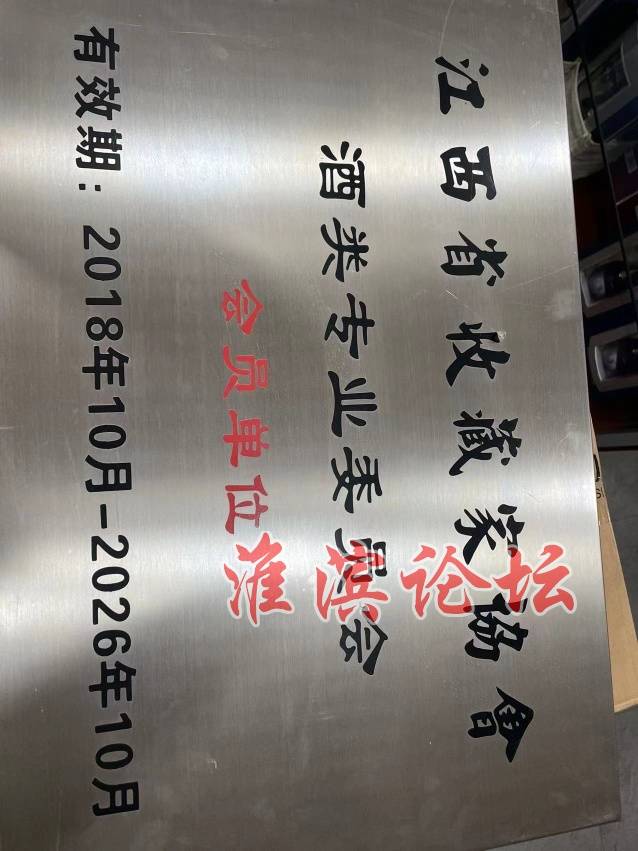 江西省收藏家協會
酒类专业委员会
会员单位
有效期：2018年10月-2026年10月
淮滨论坛